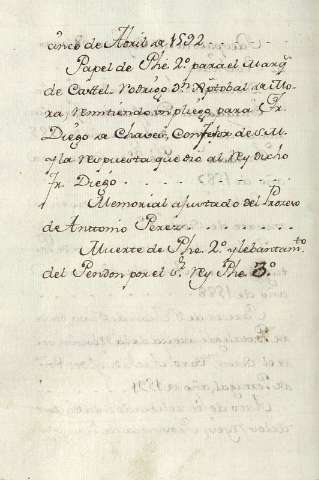 cinco de Abril de 1592
Papel de Phe. 2º para el Marqs.
de Castel Rodrigo Dn. Xptobal de Mo=
ra, remitiendo un pliego para Fr.
Diego de Chaves, Confesor de S.M.
y la respuesta que dió al Rey dicho
Fr. Diego
Memorial ajustado del Proceso
de Anttonio Perez
Muerte de Phe. 2º y lebantamto.
del Pendon por el Sr. Rey Phe. 3º